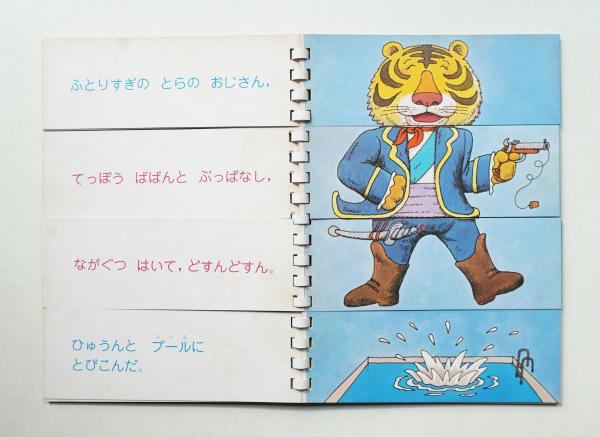 ふとりすぎの とらの おじさん,
てっぽう ばばんと ぶっぱなし,
ながぐつ はいて, どすんどすん。
ひゅうんと プールに
とびこんだ。